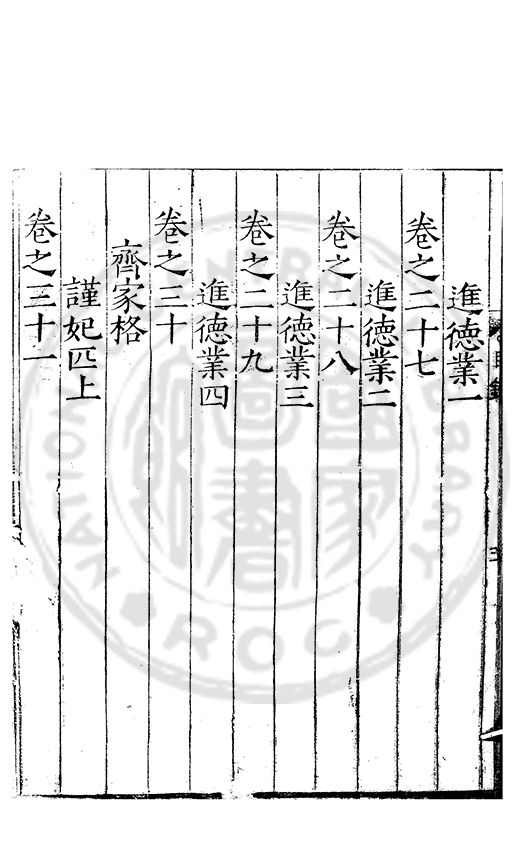 進德業一
卷之二十七
進德業二
卷之二十八
進德業三
卷之二十九
進德業四
卷之三十
齊家格
謹妃匹上
卷之三十一